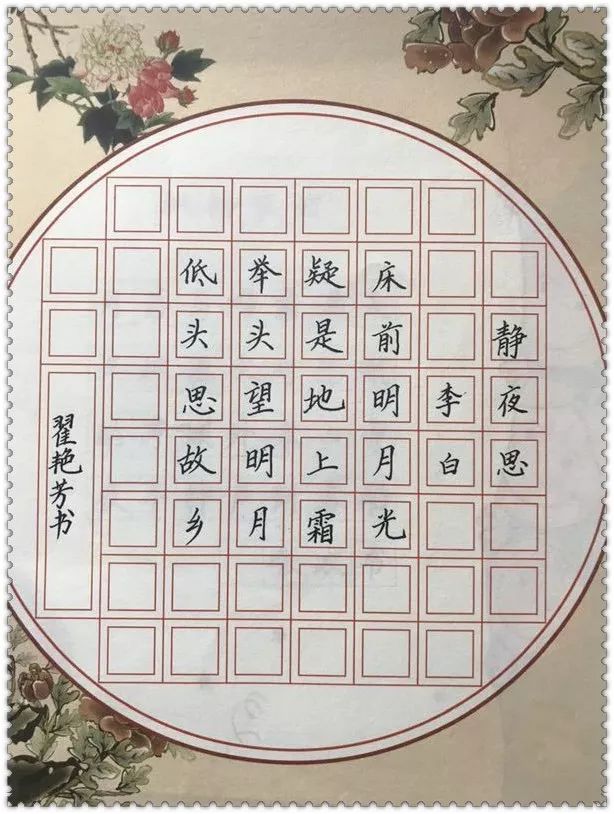 静夜思
李白
床前明月光
疑是地上霜
举头望明月
低头思故乡
翟艳芳书